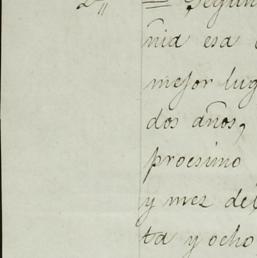 2ª = Segun
ñia esa
mejor lug
dos años,
procsimo
y mez de
ta y ocho